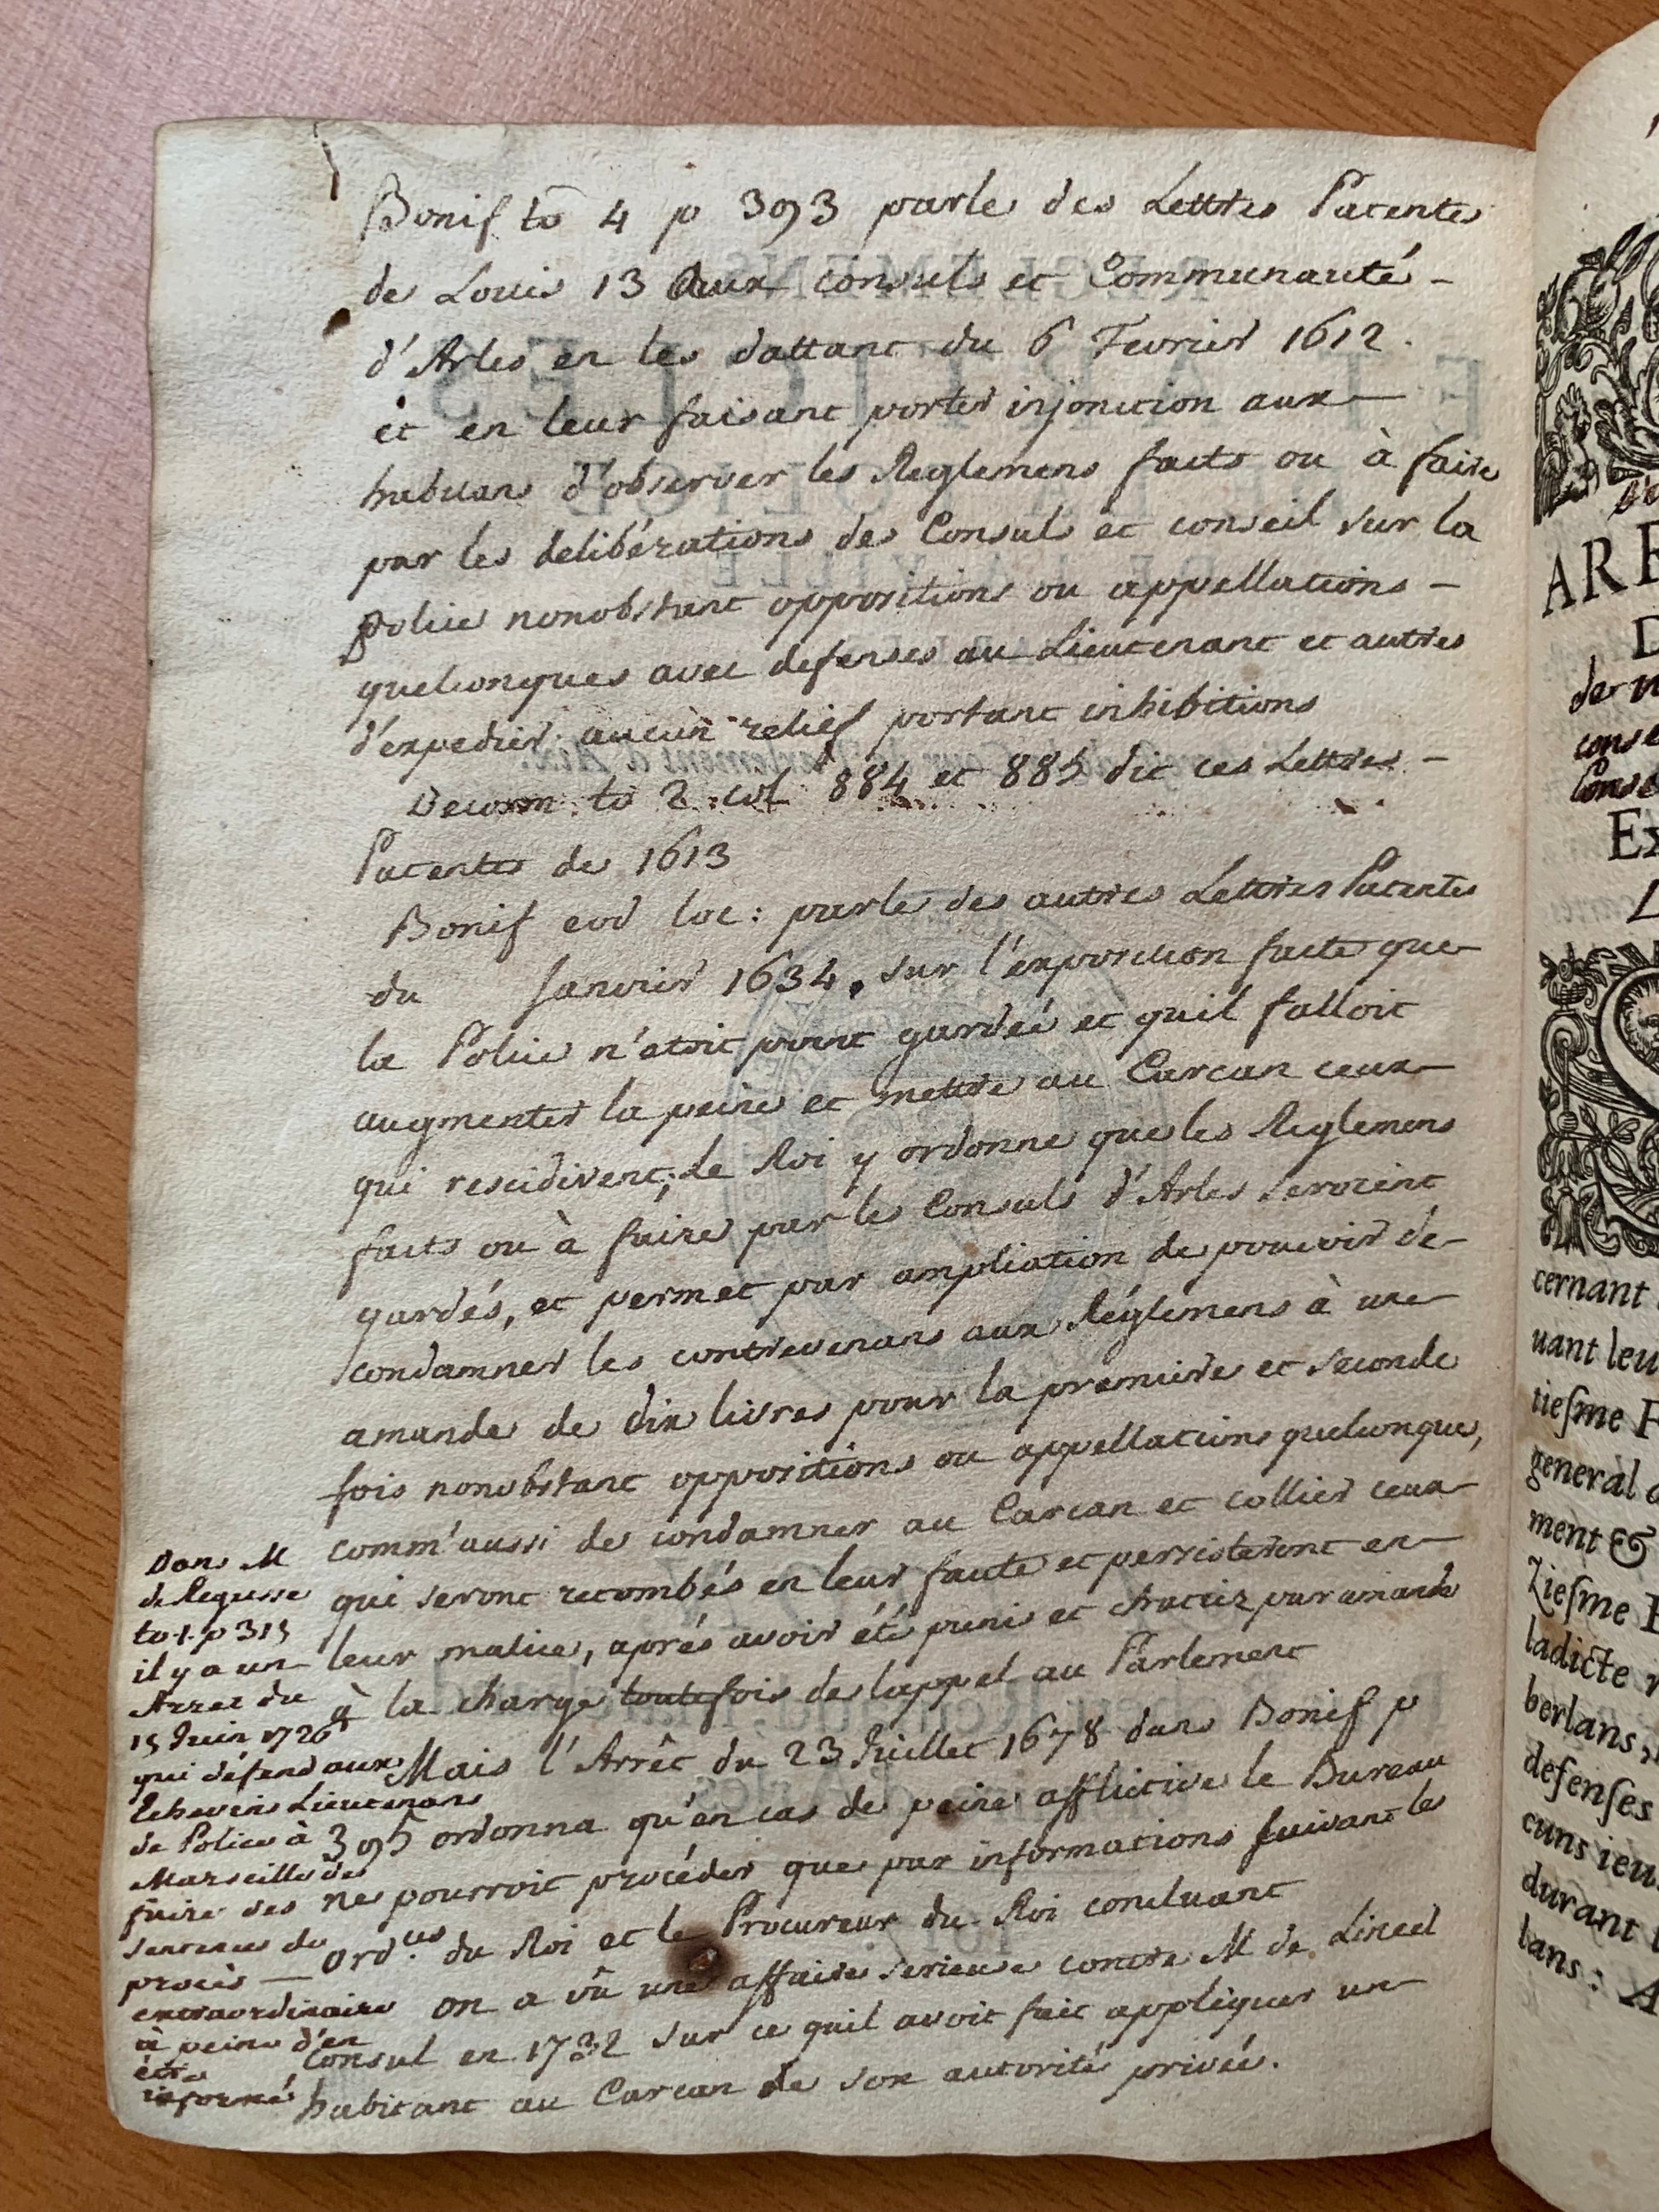 Bonif to 4 p 393 parle des Lettres Patentes
de Louis 13 aux consuls et Communauté -
d'Arles en les dattant du 6 Fevrier 1612.
et en leur faisant porter injonction aux
habitans d'observer les Reglemens faits ou à faire
par les delibérations des Consuls et conseil sur la
police nonobstant oppositions ou appellations -
quelconques avec defenses au Lieutenant et autres
d'expedier aucun relief portant inhibitions
Decorm. to 2. col 884 et 885 dit ces Lettres -
Patentes de 1613
Bonif eod loc: parle des autres Lettres Patentes
du Janvier 1634, sur l'exposition faite que
la Police n'etoit point gardée et quil falloit
augmenter la peine et mettre au Carcan ceux
qui rescidivent; Le Roi y ordonne que les Reglemens
faits ou à faire par les Consuls d'Arles seroient
gardés, et permet par ampliation de pouvoir de
condamner les contrevenans aux Réglemens à une
amande de dix livres pour la premiere et seconde
fois nonobstant oppositions ou appellations quelconques,
comm'aussi de condamner au Carcan et collier ceux
qui seront retombés en leur faute et persisteront en
leur malice, aprés avoir été punis et chatiez par amande
à la charge toutefois de lappel au Parlement
Mais l'Arrêt du 23 Juillet 1678 dans Bonif p
395 ordonna qu'en cas de peine afflictive le Bureau
ne pourroit procéder que par informations suivant les
ord.ces du Roi et le Procureur du Roi concluant
on a vû une affaire serieuse contre M de Lincel
Consul en 1732 sur ce quil avoit fait appliquer un
habitant au Carcan de son autorité privée.
Dans M
de Regusse
to 1. p 315
il y a un
Arret du
15 Juin 1726
qui défend aux
Echevins Lieutenans
de Police à
Marseille de
faire des
sentences de
procès
extraordinaire
à peine d'en
être
informé
ET
DE LA VILLE
cernant
uant leu
tiesme F
general
ment &
ladicte
berlans,
defenses
cuns ieu
durant
lans: A